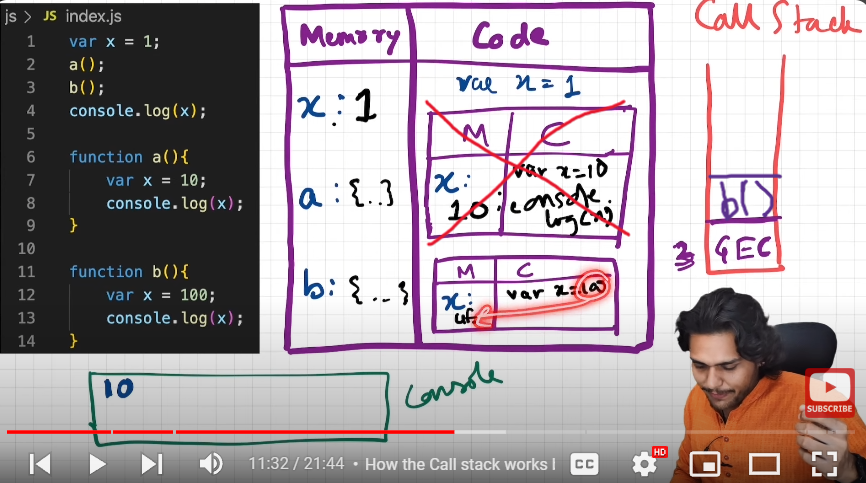 js > JS index.js
1 var x = 1;
2 a();
3 b();
4 console.log(x);
5
6 function a(){
7 var x = 10;
8 console.log(x);
9 }
10
11 function b(){
12 var x = 100;
13 console.log(x);
14 }
Memory
Code
x: 1
a: {..}
b: {...}
var x = 1
M C
x: 10
var x=10
console.
log(x)
M C
x:
uf
var x=100
Call Stack
b()
GEC
10
Console
SUBSCRIBE
11:32 / 21:44 • How the Call stack works I
CC
HD